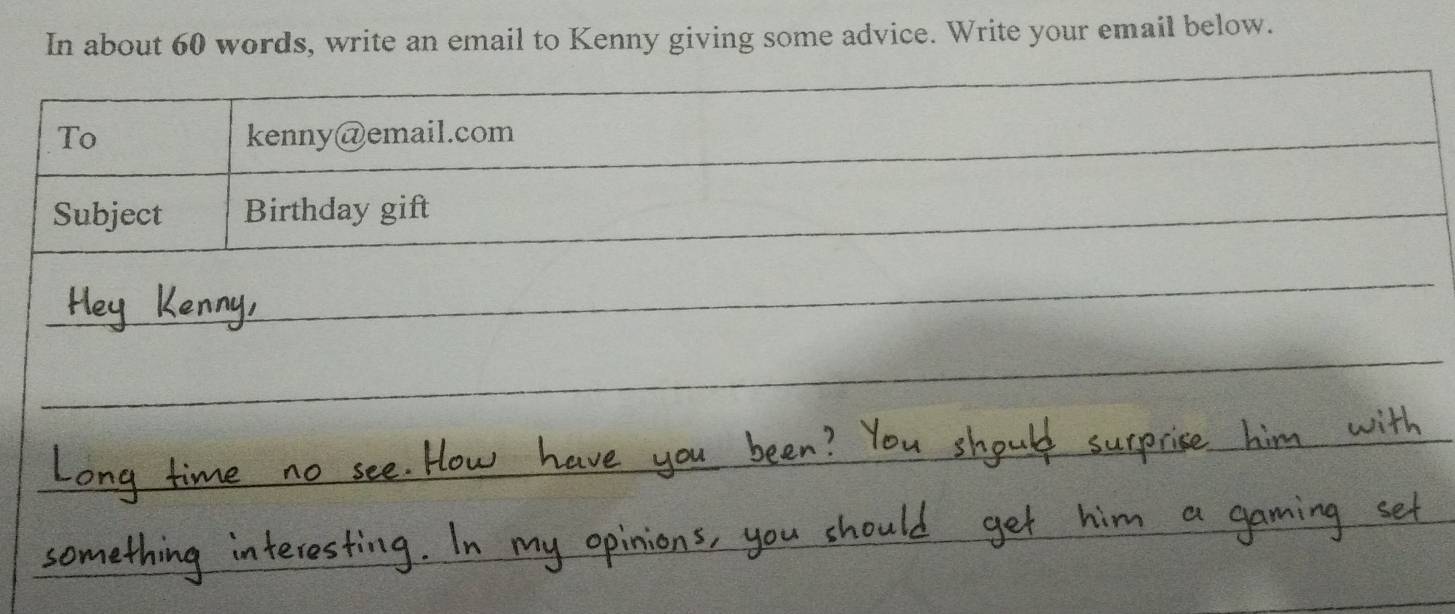 In about 60 words, write an email to Kenny giving some advice. Write your email below.
To kenny@email.com
Subject Birthday gift
Hey Kenny,
Long time no see. How have you been? You should surprise him with
something interesting. In my opinions, you should get him a gaming set